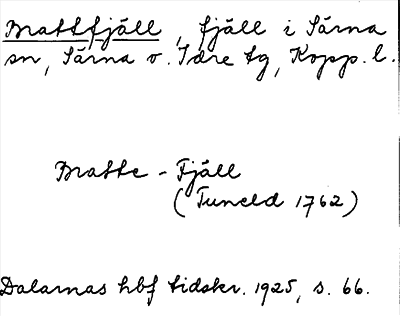 Brattfjäll, fjäll i Särna
sn, Särna o. Idre tg, Kopp. l.
Bratte - Fjäll
(Tuneld 1762)
Dalarnas hbf tidskr. 1925, s. 66.